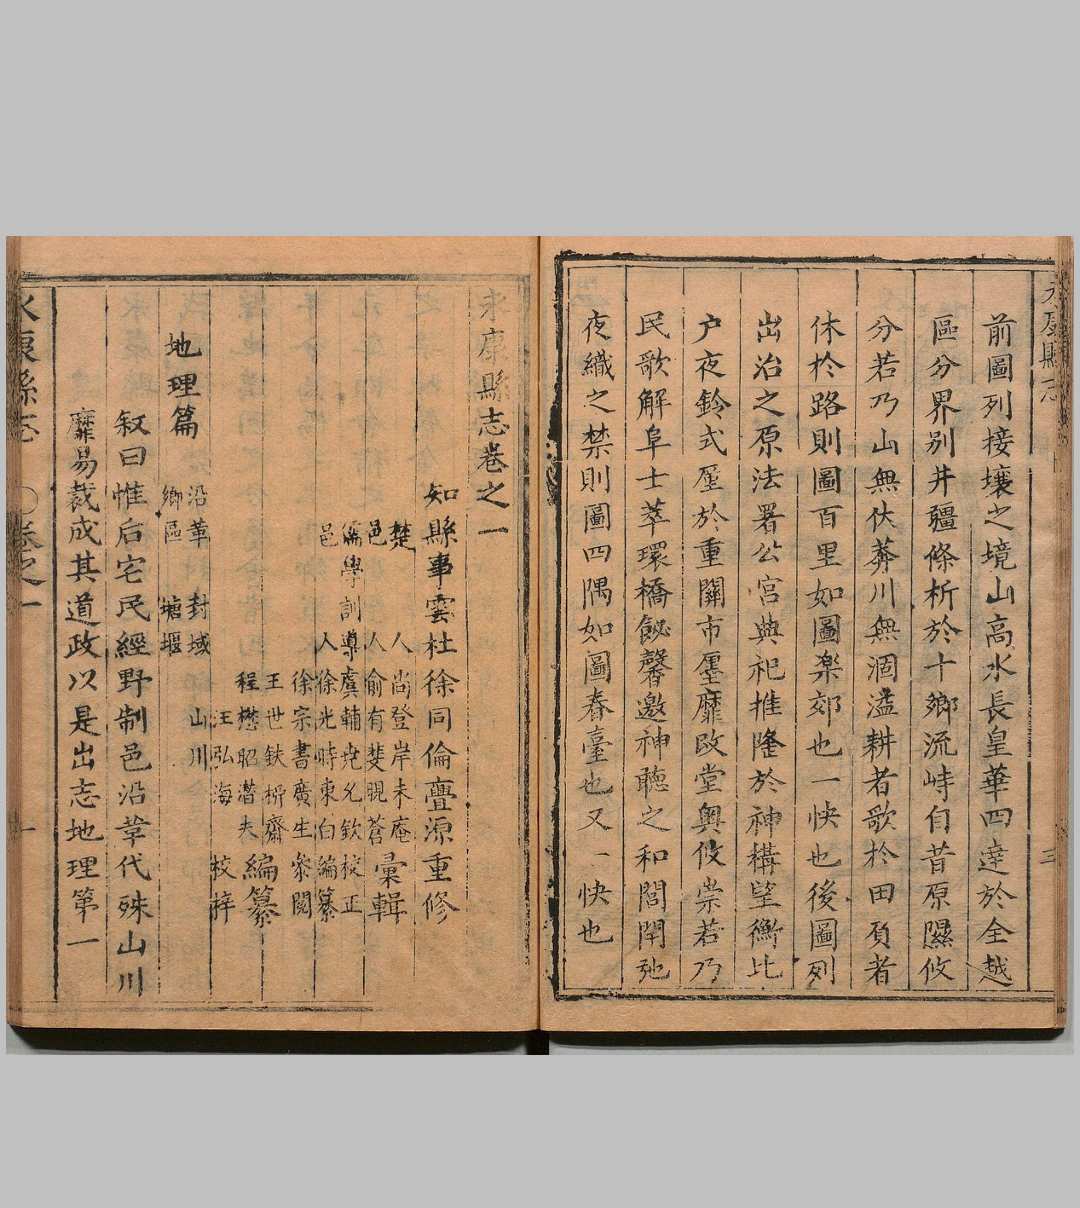 前圖列接壤之境山高水長皇華四達於全越
區分界别井疆條析於十鄉流峙自昔原隰攸
分若乃山無伏莽川無涸溢耕者歌於田負者
休於路則圖百里如圖樂郊也一快也後圖列
出治之原法署公宫典祀推隆於神構望衡比
户夜鈴式厪於重關市廛靡改堂奥攸崇若乃
民歌解阜士萃環橋飶馨邀神聽之和閭閈弛
夜織之禁則圖四隅如圖春臺也又一快也
永康縣志卷之一
知縣事雲杜徐同倫亹源重修
楚人尚登岸未庵
邑人俞有斐睍蒼彙輯
儒學訓導虞輔堯允欽校正
邑人徐光時東白編纂
徐宗書廣生參閱
王世鈇枬齋
程懋昭潛夫編纂
汪弘海校梓
地理篇
沿革 封域 山川
鄉區 塘堰
叙曰惟后宅民經野制邑沿革代殊山川
靡易裁成其道政以是出志地理第一
永康縣志 卷之一 一